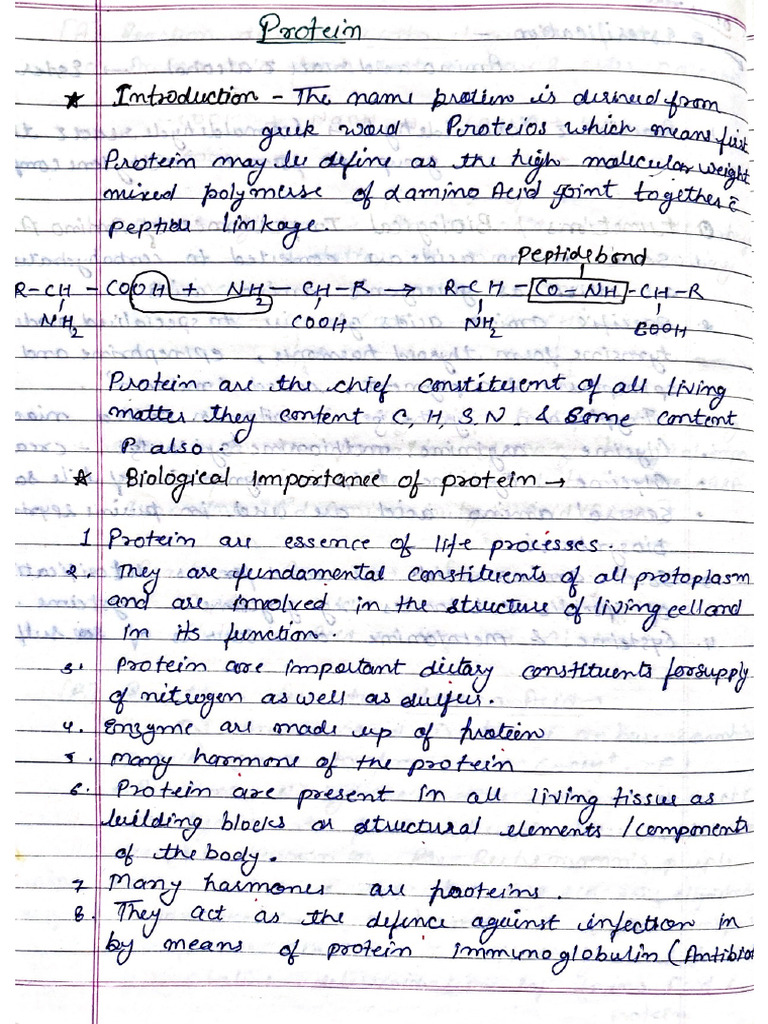 Protein
* Introduction - The name protien is desined from
greek word Proteios which means first
Protein may be define as the high moleculor weight
mixed polymerse of d amino Acid joint together c̄
peptide linkage.
Peptide bond
R-CH - COOH + NH2 - CH-R → R-CH - CO-NH - CH-R
NH2 COOH NH2 COOH
Protein are the chief constituent of all living
matter they content C, H, S, N & Some content
P also.
* Biological importance of protein →
1 Protein are essence of life processes.
2. They are fundamental constituents of all protoplasm
and are involved in the structure of living cell and
in its function.
3. Protein are important dietary constituents for supply
of nitrogen as well as sulfur.
4. Enzyme are made up of protein
5. many harmone of the protein
6. Protein are present in all living tissus as
building blocks or structural elements / components
of the body.
7 Many harmones are proteins.
8. They act as the defence against infection in
by means of protein immunoglobulin (Antibio